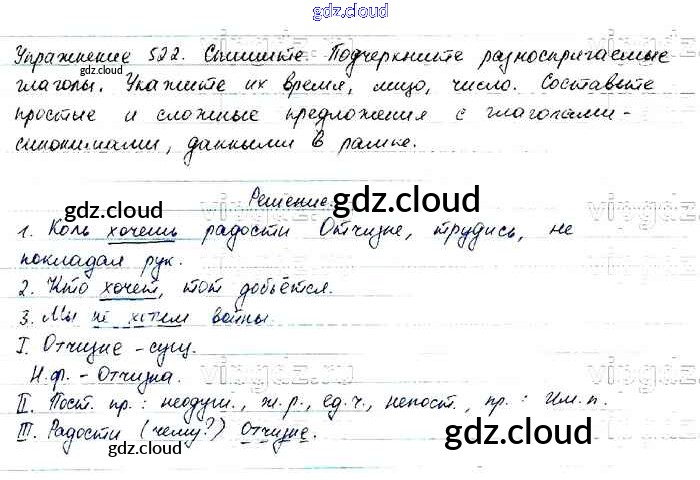 gdz.cloud
Упражнение 522. Спишите. Подчеркните разноспрягаемые
gdz.cloud
глаголы. Укажите их время, лицо, число. Составьте
простые и сложные предложения с глаголами-
синонимами, данными в рамке.
gdz.cloud
Решение.
gdz.cloud
gdz.cloud
1. Коль хочешь радости Отчизне, трудись, не
покладая рук.
2. Кто хочет, тот добьётся.
3. Мы не хотим войны.
I. Отчизне - сущ.
Н.ф. - Отчизна.
II. Пост. пр.: неодуш., ж.р., ед.ч., непост. пр.: Им.п.
III. Радости (чему?) Отчизне.
gdz.cloud
gdz.cloud